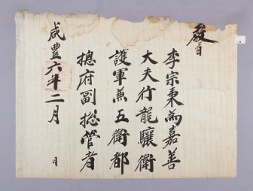 敎旨
李宗秉爲嘉善
大夫行龍驤衛
護軍兼五衛都
摠府副摠管者
咸豊六年二月 日